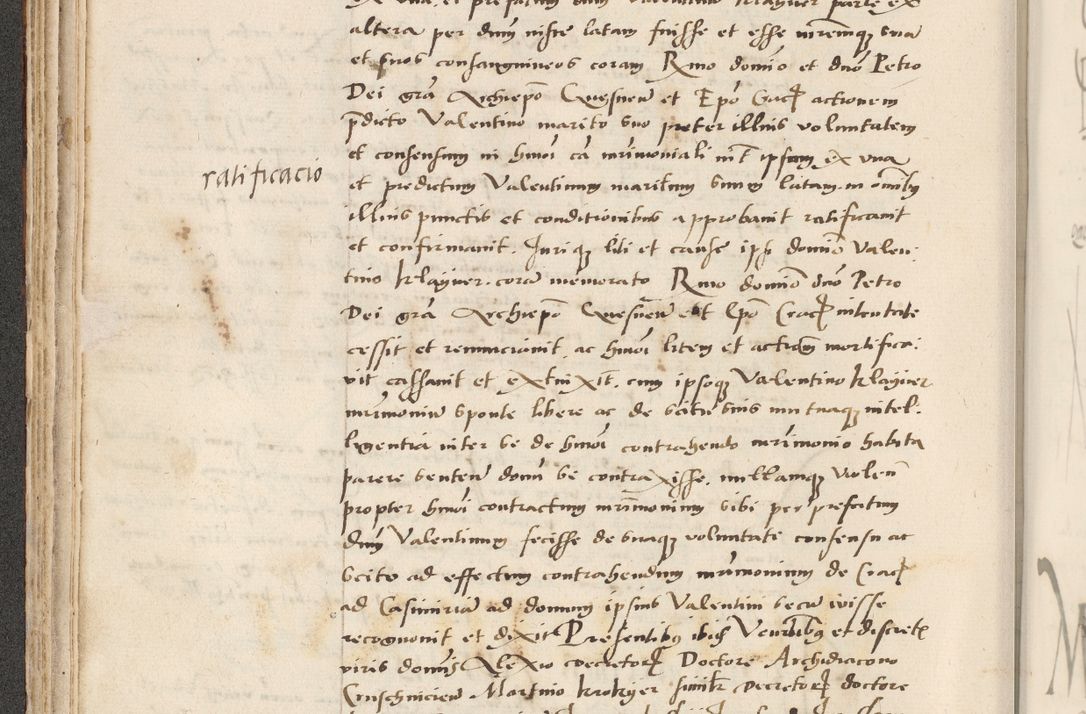 ex una, et prefatum dnm Valentinum Klayner parte ex
altera per dnm iniste latam fuisse et esse meremque sua
et suos consanguineos coram Rmo domino et dno Petro
Dei gra Archiepo Gnesnen et Epo Crac actionem
pdicto Valentino marito suo preter illius voluntatem
et consensum in hmoi ca mrimoniali int ipsam ex una
ratificacio
et predictum Valentinum maritum suum latam in omnibus
illius punctis et conditionibus approbauit ratificauit
et confirmauit. Jurique liti et cause ipsi domino Valen
tino Klayner coram memorato Rmo domino dno Petro
Dei gra Archiepo Gnesnen et Epo Crac intentate
cessit et renunciauit ac hmoi litem et actionem mortifica
vit cassauit et extinxit, cum ipsoque Valentino Klayner
mrimonium sponte libere ac de scitu suis mutuaque intel
ligentia inter se de hmoi contrahendo mrimonio habita
parere senten domi se contraxisse, nullamque violen
propter hmoi contractum mrimonium sibi per prefatum
dnm Valentinum fecisse de suaque voluntate consensu ac
scitu ad effectum contrahendum mrimonium de Crac
ad Casimiriam ad domum ipsius Valentini secum iuisse
recognouit et dixit Presentibus ibidem Venerabilibus et discretis
viris dominis Alexio decretorum Doctore Archidiacono
Crusuicien Martino Krokyer similiter decretorum doctore